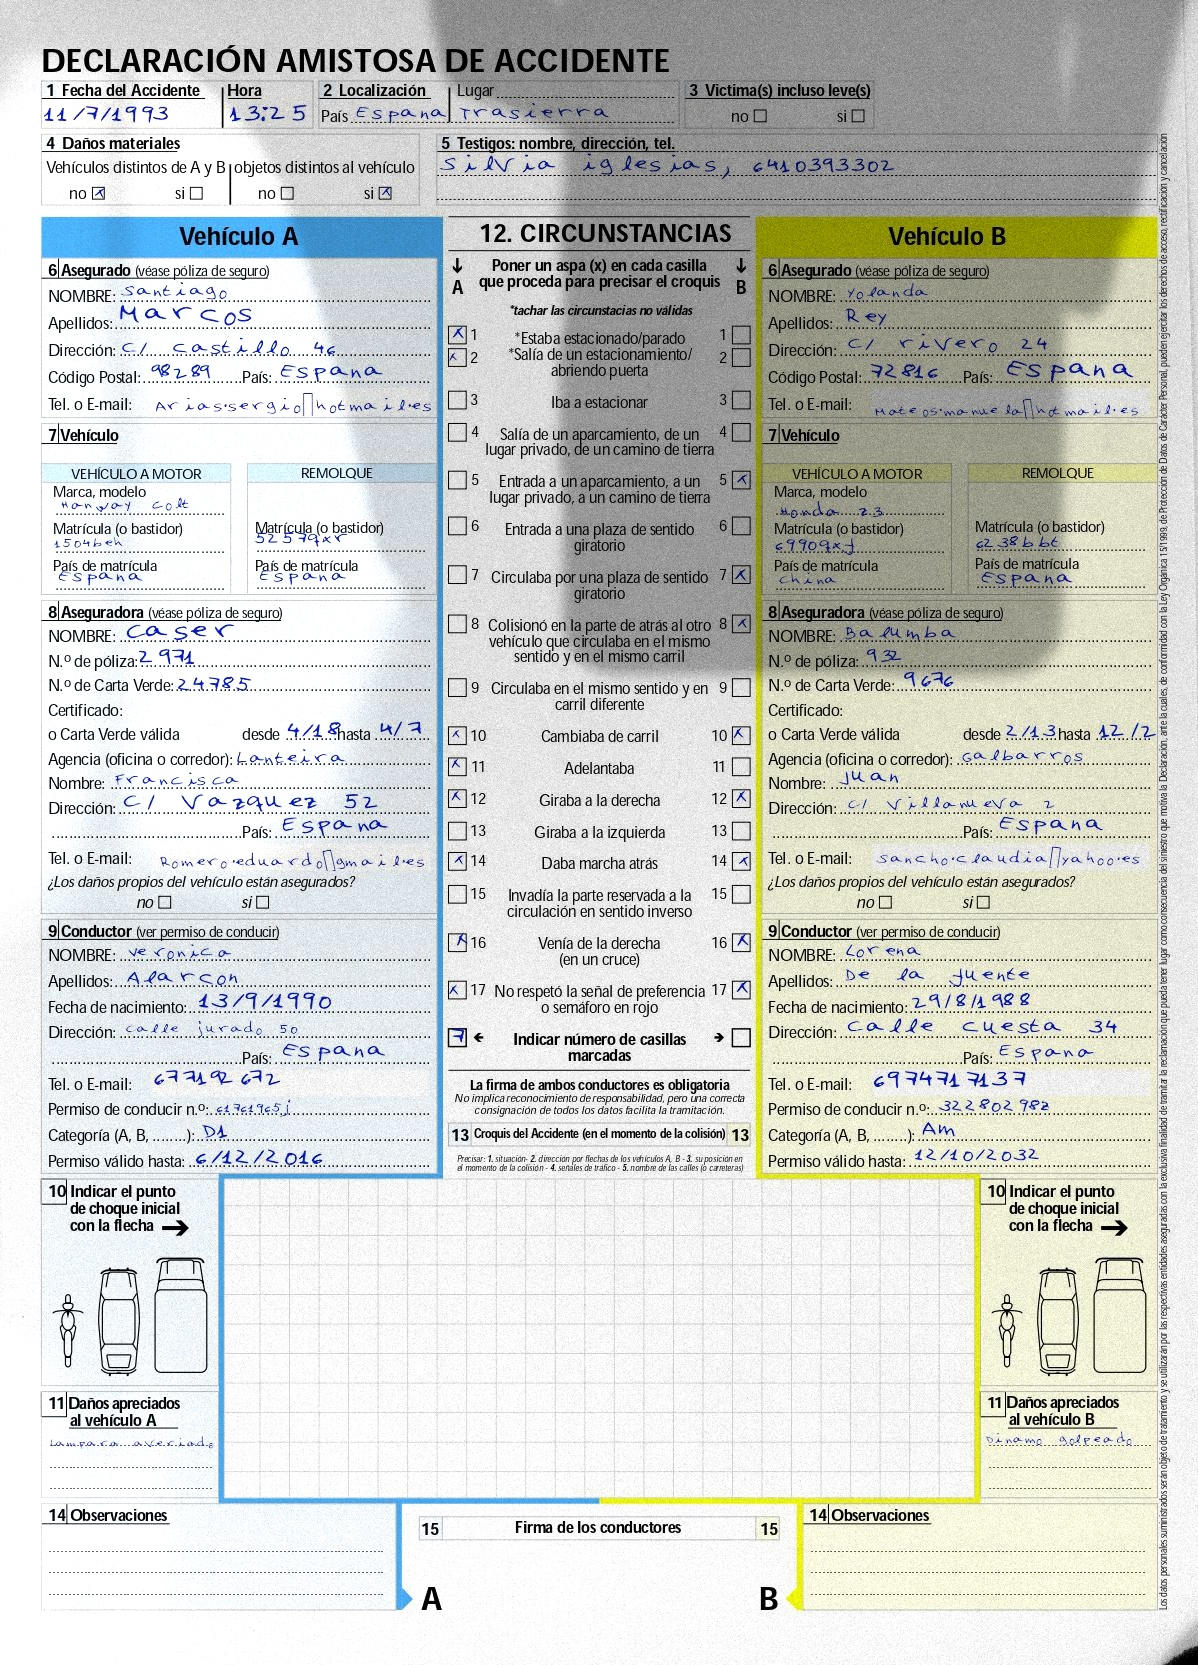 DECLARACIÓN AMISTOSA DE ACCIDENTE
1 Fecha del Accidente Hora 2 Localización Lugar 3 Victima(s) incluso leve(s)
11/7/1993 13:25 País Espana Trasierra no si
4 Daños materiales
Vehículos distintos de A y B objetos distintos al vehículo
no x si no si x
5 Testigos: nombre, dirección, tel.
Silvia iglesias, 6410393302
Vehículo A
6 Asegurado (véase póliza de seguro)
NOMBRE: Santiago
Apellidos: Marcos
Dirección: C/ castillo 46
Código Postal: 98289 País: Espana
Tel. o E-mail: Arias.sergio▯hotmail.es
7 Vehículo
VEHÍCULO A MOTOR REMOLQUE
Marca, modelo
Hanway colt
Matrícula (o bastidor) Matrícula (o bastidor)
1504beh 52579xr
País de matrícula País de matrícula
Espana Espana
8 Aseguradora (véase póliza de seguro)
NOMBRE: caser
N.º de póliza: 2971
N.º de Carta Verde: 24785
Certificado:
o Carta Verde válida desde 4/18 hasta 4/7
Agencia (oficina o corredor): Lanteira
Nombre: Francisca
Dirección: C/ Vazquez 52
País: Espana
Tel. o E-mail: Romero.eduardo▯gmail.es
¿Los daños propios del vehículo están asegurados?
no si
9 Conductor (ver permiso de conducir)
NOMBRE: veronica
Apellidos: Alarcon
Fecha de nacimiento: 13/9/1990
Dirección: calle jurado 50
País: Espana
Tel. o E-mail: 677192672
Permiso de conducir n.º: 61761965j
Categoría (A, B, ........): D1
Permiso válido hasta: 6/12/2016
12. CIRCUNSTANCIAS
A Poner un aspa (x) en cada casilla que proceda para precisar el croquis B
*tachar las circunstacias no válidas
x 1 *Estaba estacionado/parado 1
x 2 *Salía de un estacionamiento/ 2
abriendo puerta
3 Iba a estacionar 3
4 Salía de un aparcamiento, de un 4
lugar privado, de un camino de tierra
5 Entrada a un aparcamiento, a un 5 x
lugar privado, a un camino de tierra
6 Entrada a una plaza de sentido 6
giratorio
7 Circulaba por una plaza de sentido 7 x
giratorio
8 Colisionó en la parte de atrás al otro 8 x
vehículo que circulaba en el mismo
sentido y en el mismo carril
9 Circulaba en el mismo sentido y en 9
carril diferente
x 10 Cambiaba de carril 10 x
x 11 Adelantaba 11
x 12 Giraba a la derecha 12 x
13 Giraba a la izquierda 13
x 14 Daba marcha atrás 14 x
15 Invadía la parte reservada a la 15
circulación en sentido inverso
x 16 Venía de la derecha 16 x
(en un cruce)
x 17 No respetó la señal de preferencia 17 x
o semáforo en rojo
7 Indicar número de casillas
marcadas
La firma de ambos conductores es obligatoria
No implica reconocimiento de responsabilidad, pero una correcta
consignación de todos los datos facilita la tramitación.
13 Croquis del Accidente (en el momento de la colisión) 13
Precisar: 1. situación- 2. dirección por flechas de los vehículos A, B - 3. su posición en
el momento de la colisión - 4. señales de tráfico - 5. nombre de las calles (o carreteras)
Vehículo B
6 Asegurado (véase póliza de seguro)
NOMBRE: Yolanda
Apellidos: Rey
Dirección: C/ rivero 24
Código Postal: 72816 País: Espana
Tel. o E-mail: Mateos.manuela▯hotmail.es
7 Vehículo
VEHÍCULO A MOTOR REMOLQUE
Marca, modelo
Honda z3
Matrícula (o bastidor) Matrícula (o bastidor)
6990qxj 6238bbt
País de matrícula País de matrícula
China Espana
8 Aseguradora (véase póliza de seguro)
NOMBRE: Balumba
N.º de póliza: 932
N.º de Carta Verde: 9676
Certificado:
o Carta Verde válida desde 2/13 hasta 12/2
Agencia (oficina o corredor): Galbarros
Nombre: Juan
Dirección: C/ Villanueva 2
País: Espana
Tel. o E-mail: sancho.claudia▯yahoo.es
¿Los daños propios del vehículo están asegurados?
no si
9 Conductor (ver permiso de conducir)
NOMBRE: Lorena
Apellidos: De la fuente
Fecha de nacimiento: 29/8/1988
Dirección: calle cuesta 34
País: Espana
Tel. o E-mail: 6974717137
Permiso de conducir n.º: 32280298z
Categoría (A, B, ........): Am
Permiso válido hasta: 12/10/2032
10 Indicar el punto
de choque inicial
con la flecha
10 Indicar el punto
de choque inicial
con la flecha
11 Daños apreciados
al vehículo A
Lampara averiado
11 Daños apreciados
al vehículo B
Dinamo golpeado
14 Observaciones
15 Firma de los conductores 15
14 Observaciones
A B